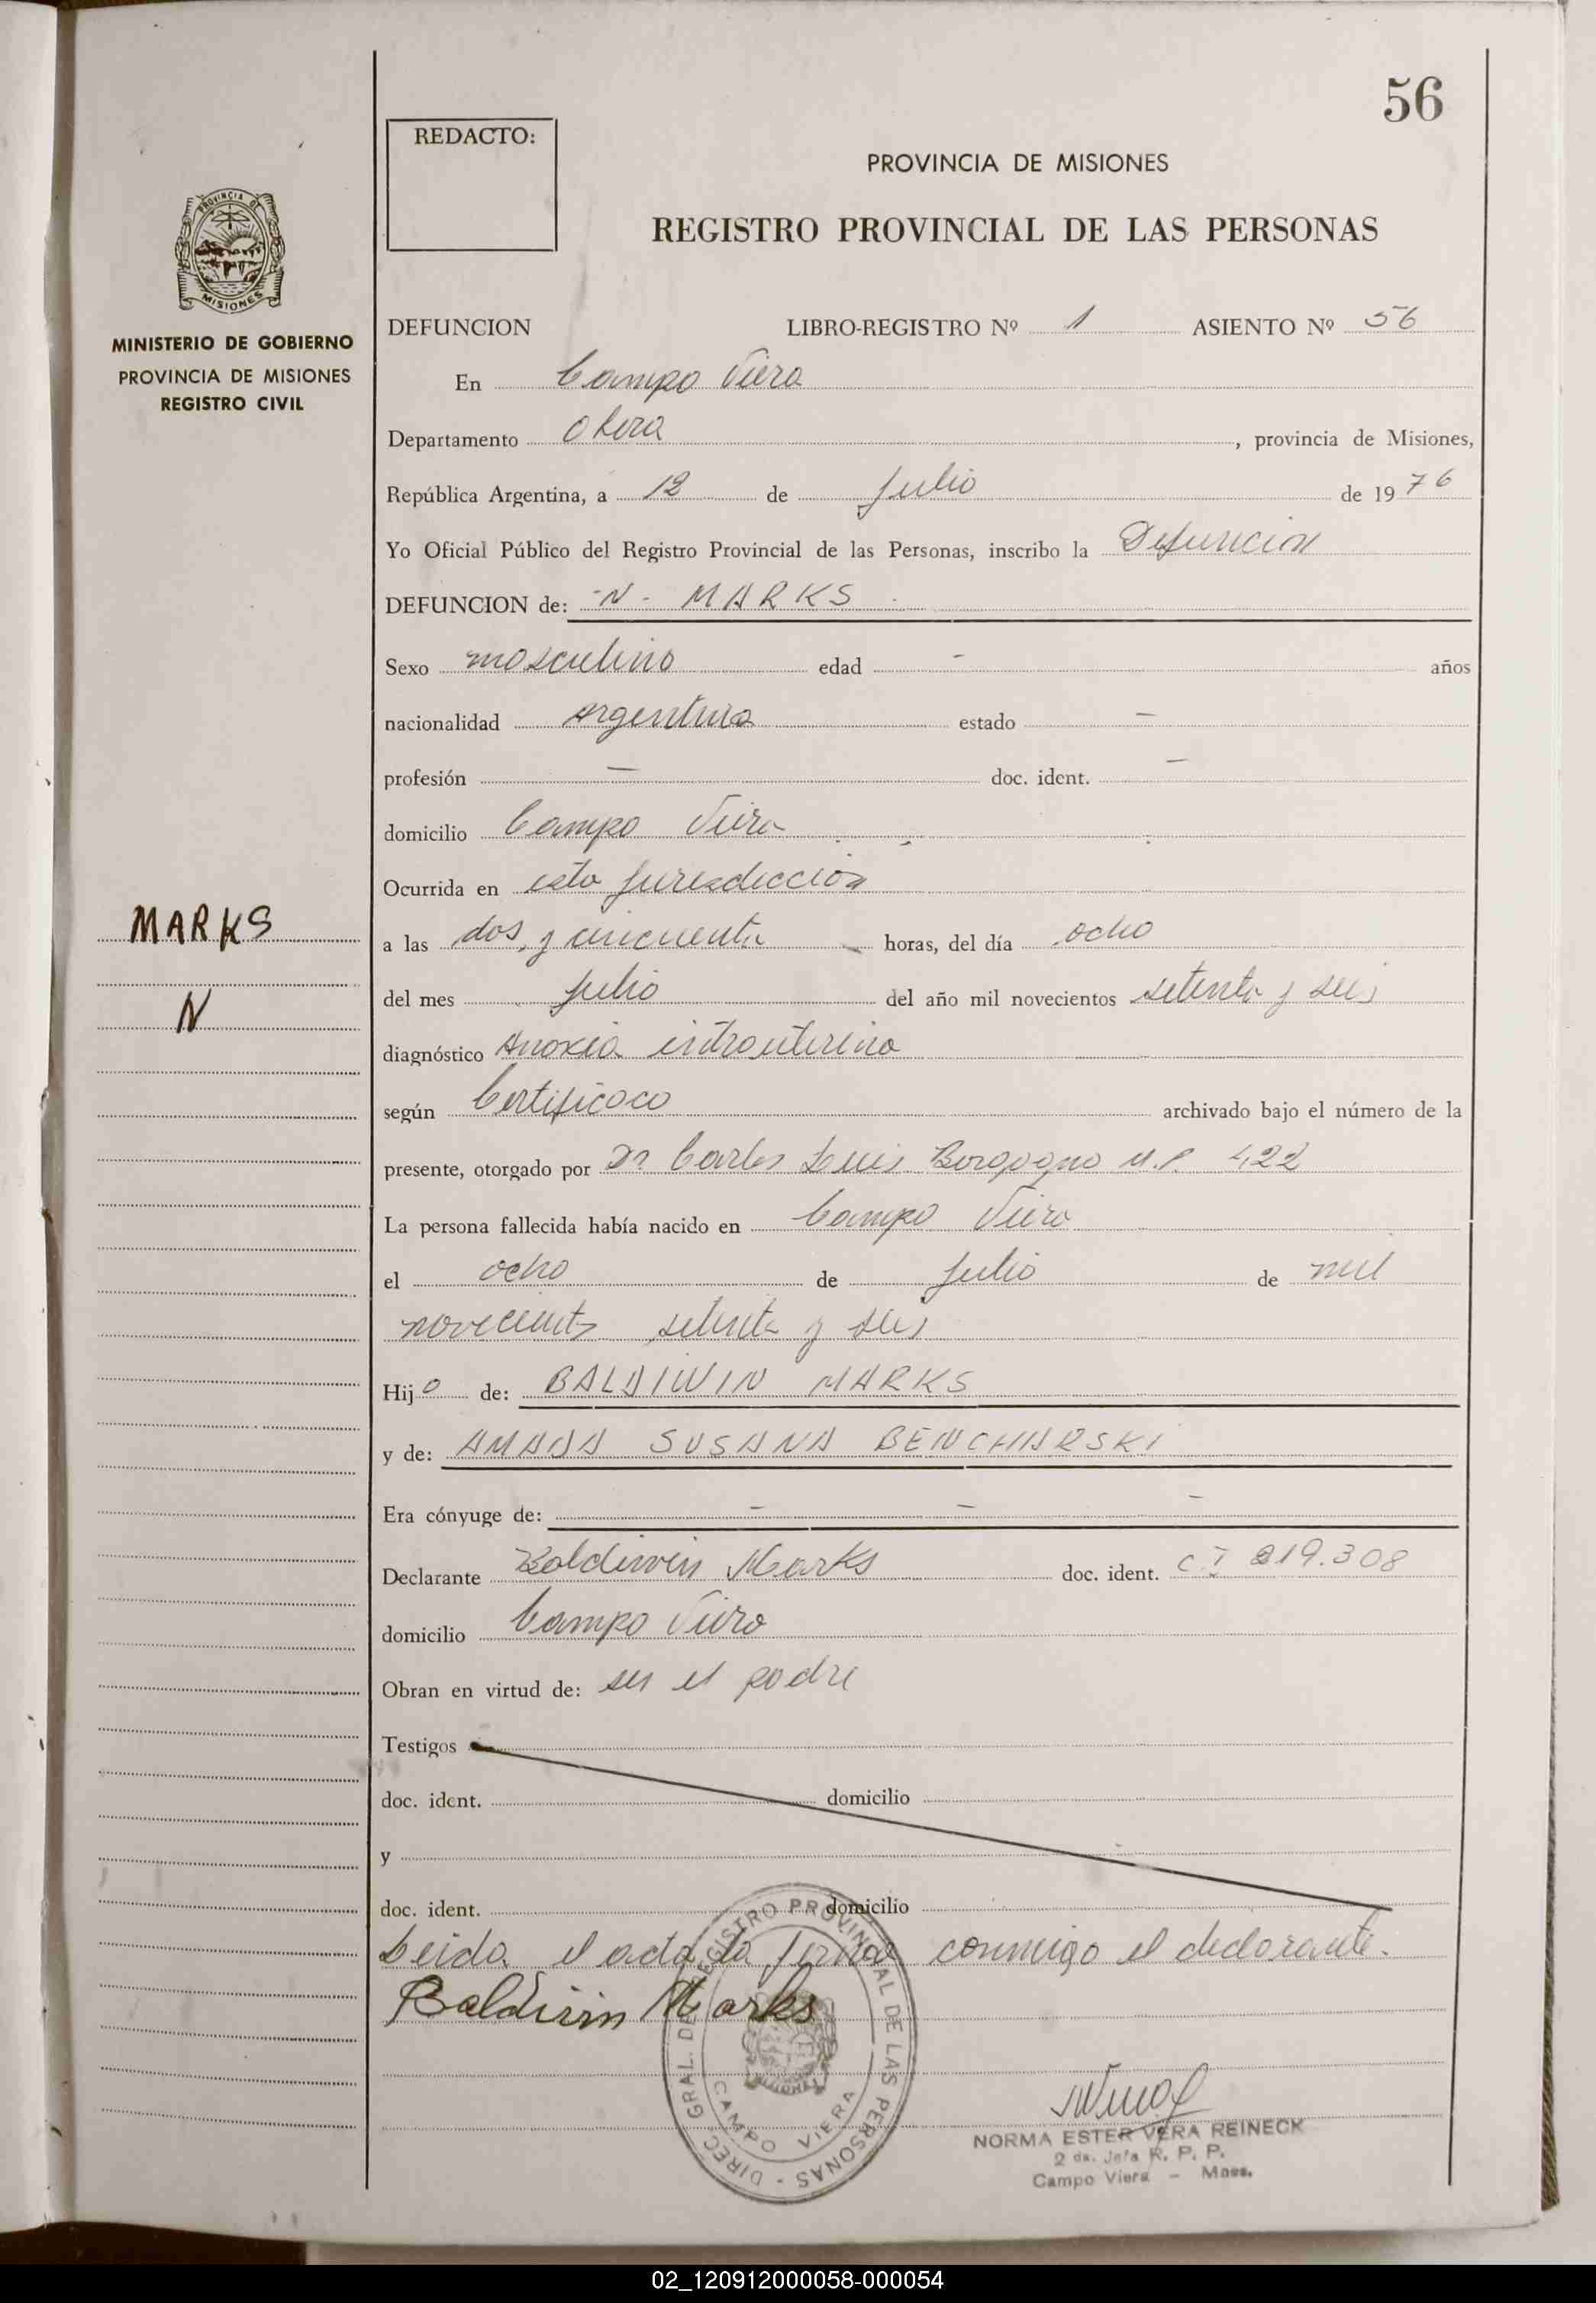 56
REDACTO:
PROVINCIA DE MISIONES
REGISTRO PROVINCIAL DE LAS PERSONAS
PROVINCIA DE
MISIONES
MINISTERIO DE GOBIERNO
PROVINCIA DE MISIONES
REGISTRO CIVIL
DEFUNCION LIBRO-REGISTRO Nº 1 ASIENTO Nº 56
En Campo Viera
Departamento Obera, provincia de Misiones,
República Argentina, a 12 de Julio de 1976
Yo Oficial Público del Registro Provincial de las Personas, inscribo la Defuncion
DEFUNCION de: -N- MARKS
Sexo masculino edad - años
nacionalidad Argentina estado -
profesión - doc. ident. -
domicilio Campo Viera
Ocurrida en esta Jurisdiccion
MARKS
N
a las dos, y cincuenta horas, del día ocho
del mes Julio del año mil novecientos setenta y seis
diagnóstico Anoxia intrauterina
según Certificaco archivado bajo el número de la
presente, otorgado por Dr Carlos Luis Borgogno M.P. 422
La persona fallecida había nacido en Campo Viera
el ocho de Julio de mil
novecientos setenta y seis
Hijo de: BALDIWIN MARKS
y de: AMADA SUSANA BENCHARSKI
Era cónyuge de: - - -
Declarante Baldiwin Marks doc. ident. C I 219.308
domicilio Campo Viera
Obran en virtud de: ser el padre
Testigos
doc. ident. domicilio
y
doc. ident. domicilio
Leida el acta la firma conmigo el declarante.
Baldiwin Marks
DIREC. GRAL. DE REGISTRO PROVINCIAL DE LAS PERSONAS -
CAMPO VIERA
MISIONES
NORMA ESTER VERA REINECK
2 da. Jefa R. P. P.
Campo Viera - Mnes.
02_120912000058-000054